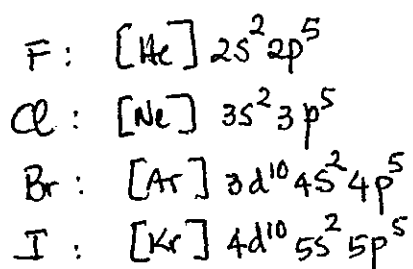 F: [He] 2s² 2p⁵
Cl: [Ne] 3s² 3p⁵
Br: [Ar] 3d¹⁰ 4s² 4p⁵
I: [Kr] 4d¹⁰ 5s² 5p⁵